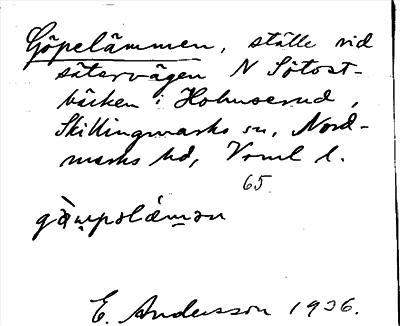 Göpelämmen, ställe vid
sätervägen N Sötost-
bäcken i Holmserud,
Skillingmarks sn, Nord-
marks hd, Vrml l.
65
E. Andersson 1936.